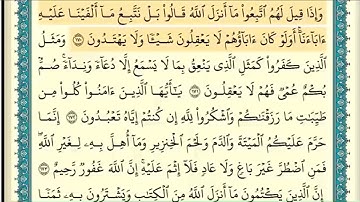 وَإِذَا قِيلَ لَهُمُ ٱتَّبِعُوا۟ مَآ أَنزَلَ ٱللَّهُ قَالُوا۟ بَلْ نَتَّبِعُ مَآ أَلْفَيْنَا عَلَيْهِ
ءَابَآءَنَآ أَوَلَوْ كَانَ ءَابَآؤُهُمْ لَا يَعْقِلُونَ شَيْـًٔا وَلَا يَهْتَدُونَ ١٧٠ وَمَثَلُ
ٱلَّذِينَ كَفَرُوا۟ كَمَثَلِ ٱلَّذِى يَنْعِقُ بِمَا لَا يَسْمَعُ إِلَّا دُعَآءً وَنِدَآءً صُمٌّۢ
بُكْمٌ عُمْىٌ فَهُمْ لَا يَعْقِلُونَ ١٧١ يَـٰٓأَيُّهَا ٱلَّذِينَ ءَامَنُوا۟ كُلُوا۟ مِن
طَيِّبَـٰتِ مَا رَزَقْنَـٰكُمْ وَٱشْكُرُوا۟ لِلَّهِ إِن كُنتُمْ إِيَّاهُ تَعْبُدُونَ ١٧٢ إِنَّمَا
حَرَّمَ عَلَيْكُمُ ٱلْمَيْتَةَ وَٱلدَّمَ وَلَحْمَ ٱلْخِنزِيرِ وَمَآ أُهِلَّ بِهِۦ لِغَيْرِ ٱللَّهِ
فَمَنِ ٱضْطُرَّ غَيْرَ بَاغٍ وَلَا عَادٍ فَلَآ إِثْمَ عَلَيْهِ إِنَّ ٱللَّهَ غَفُورٌ رَّحِيمٌ ١٧٣
إِنَّ ٱلَّذِينَ يَكْتُمُونَ مَآ أَنزَلَ ٱللَّهُ مِنَ ٱلْكِتَـٰبِ وَيَشْتَرُونَ بِهِۦ ثَمَنًا